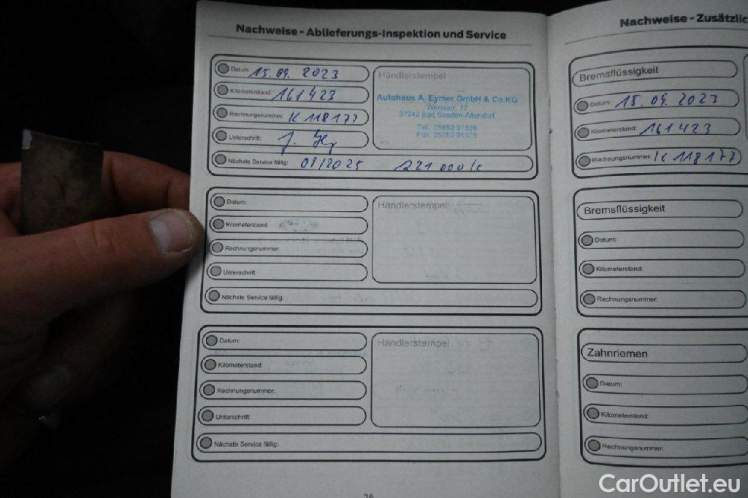 Nachweise - Ablieferungs-Inspektion und Service
Datum: 15.09.2023
Kilometerstand: 161423
Rechnungsnummer: K 118177
Unterschrift:
Nächste Service fällig: 09/2025 221 000 k
Händlerstempel
Autohaus A. Eymer GmbH & Co.KG
Datum:
Kilometerstand:
Rechnungsnummer:
Unterschrift:
Nächste Service fällig:
Händlerstempel
Datum:
Kilometerstand:
Rechnungsnummer:
Unterschrift:
Nächste Service fällig:
Händlerstempel
Nachweise - Zusätzlic
Bremsflüssigkeit
Datum: 15.09.2023
Kilometerstand: 161423
Rechnungsnummer: K 118177
Bremsflüssigkeit
Datum:
Kilometerstand:
Rechnungsnummer:
Zahnriemen
Datum:
Kilometerstand:
Rechnungsnummer:
CarOutlet.eu